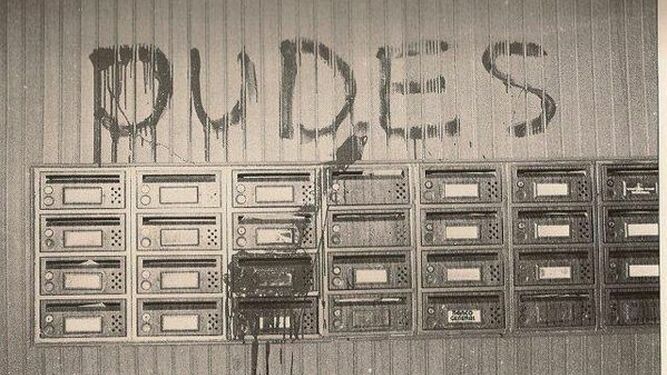 DUDES
BANCO
GENERAL